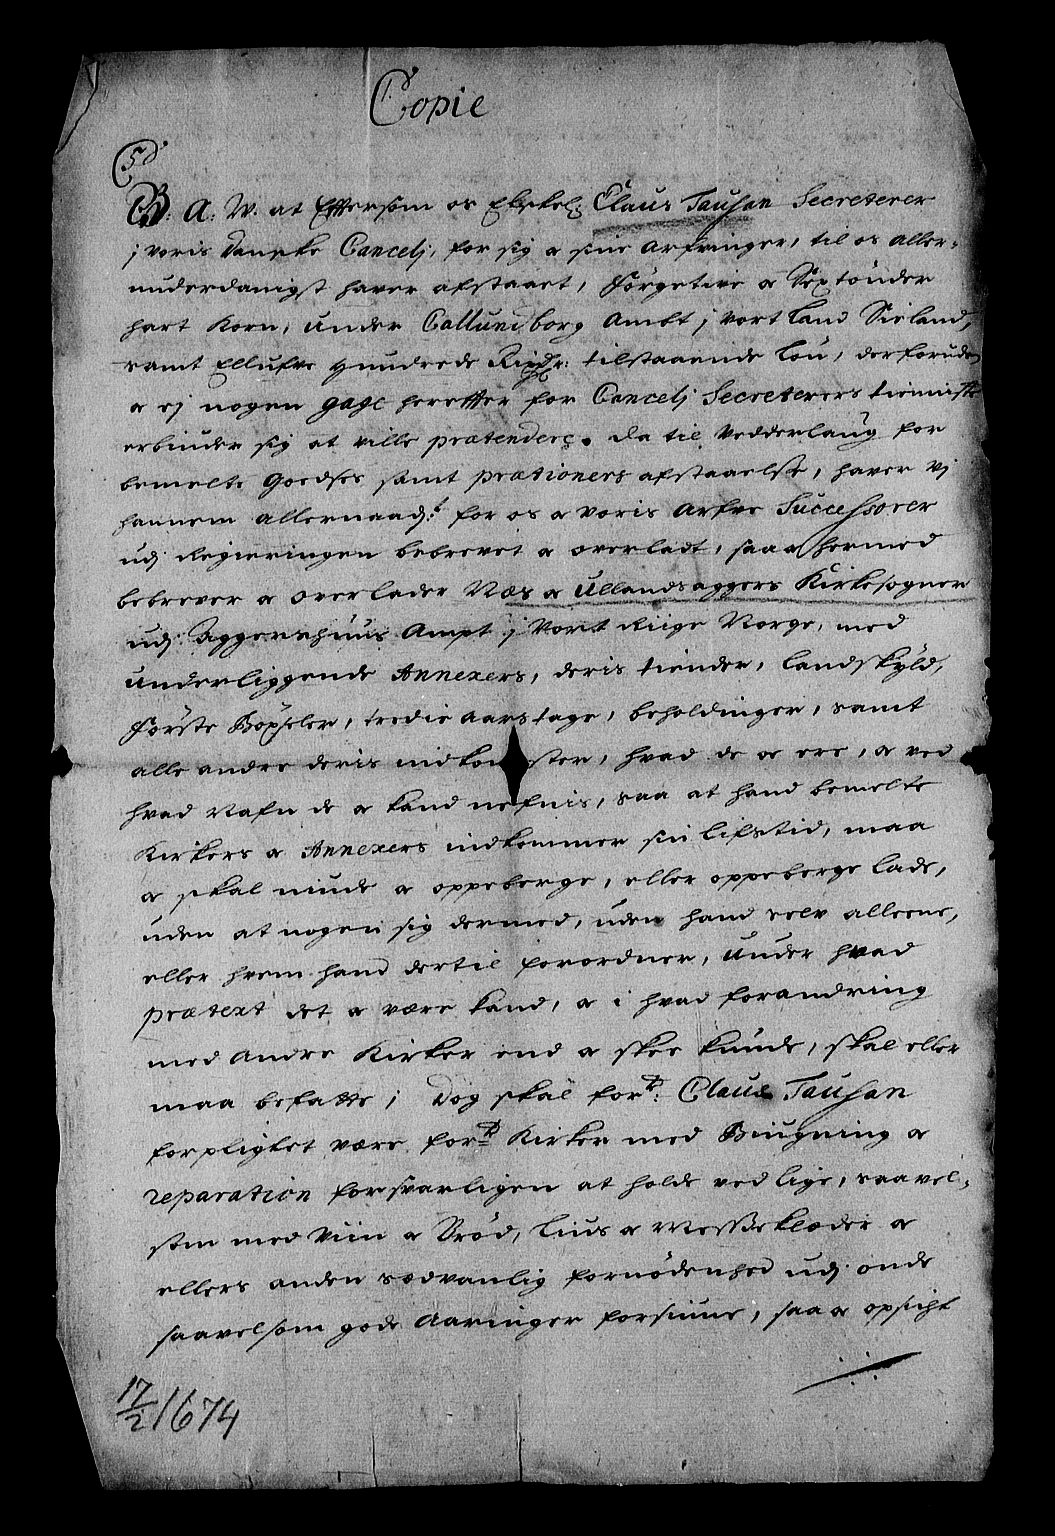 Copie
C5
G: A: W. at Efftersom os Elskel: Claus Tausan Secreterer
j voris Danske Cancelj, for sig oc sine Arfvinger, til os aller-
underdanigst haver afstaaet, Förgetive oc Sextönder
hart Korn, under Callundborg Ambt j vort Land Sieland,
samt Ellufve Hundrede Rixdr: tilstaaende Lön, desforuden
oc ej nogen gage herefter for Cancelj Secreterers tienniste
erbiuder sig at ville prætendere. Da til Vedderlaug for
bemelte Goedses samt prætioners afstaaelse, haver vj
hannem allernaad:t for os oc voris Arfve Successorer
udj Regieringen bebrevet oc overladt, saa oc hermed
bebrever oc overlader Næs oc Ullandsaggers Kirkesogner
udj Aggershuus Ampt j Vort Riige Norge, med
underliggende Annexers, deris tiender, landskyld,
Förste Böxseler, tredie aars tage, beholdinger, samt
alle andre deris indkomster, hvad de oc ere, oc ved
hvad Nafn de oc kand nefnis, saa at hand bemelte
Kirkers oc Annexers indkommer sin lifstid, maa
oc skal niude oc oppeberge, eller oppeberge lade,
uden at nogen sig dermed, uden hand selv alleene,
eller hvem hand dertil forordner, under hvad
prætext det oc være kand, oc i hvad forandring
med andre Kirker end oc skee kunde, skal eller
maa befatte j Dog skal for:te Claus Tausan
forpligtet være for:te Kirker med Biugning oc
reparation forsvarligen at holde ved lige, saavel-
som med Viin oc Bröd, Lius oc Messeklæder oc
ellers anden sædvanlig fornödenhed udj onde
saavelsom gode Aaringer forsiune, saa oc opsicht
17/2 1674